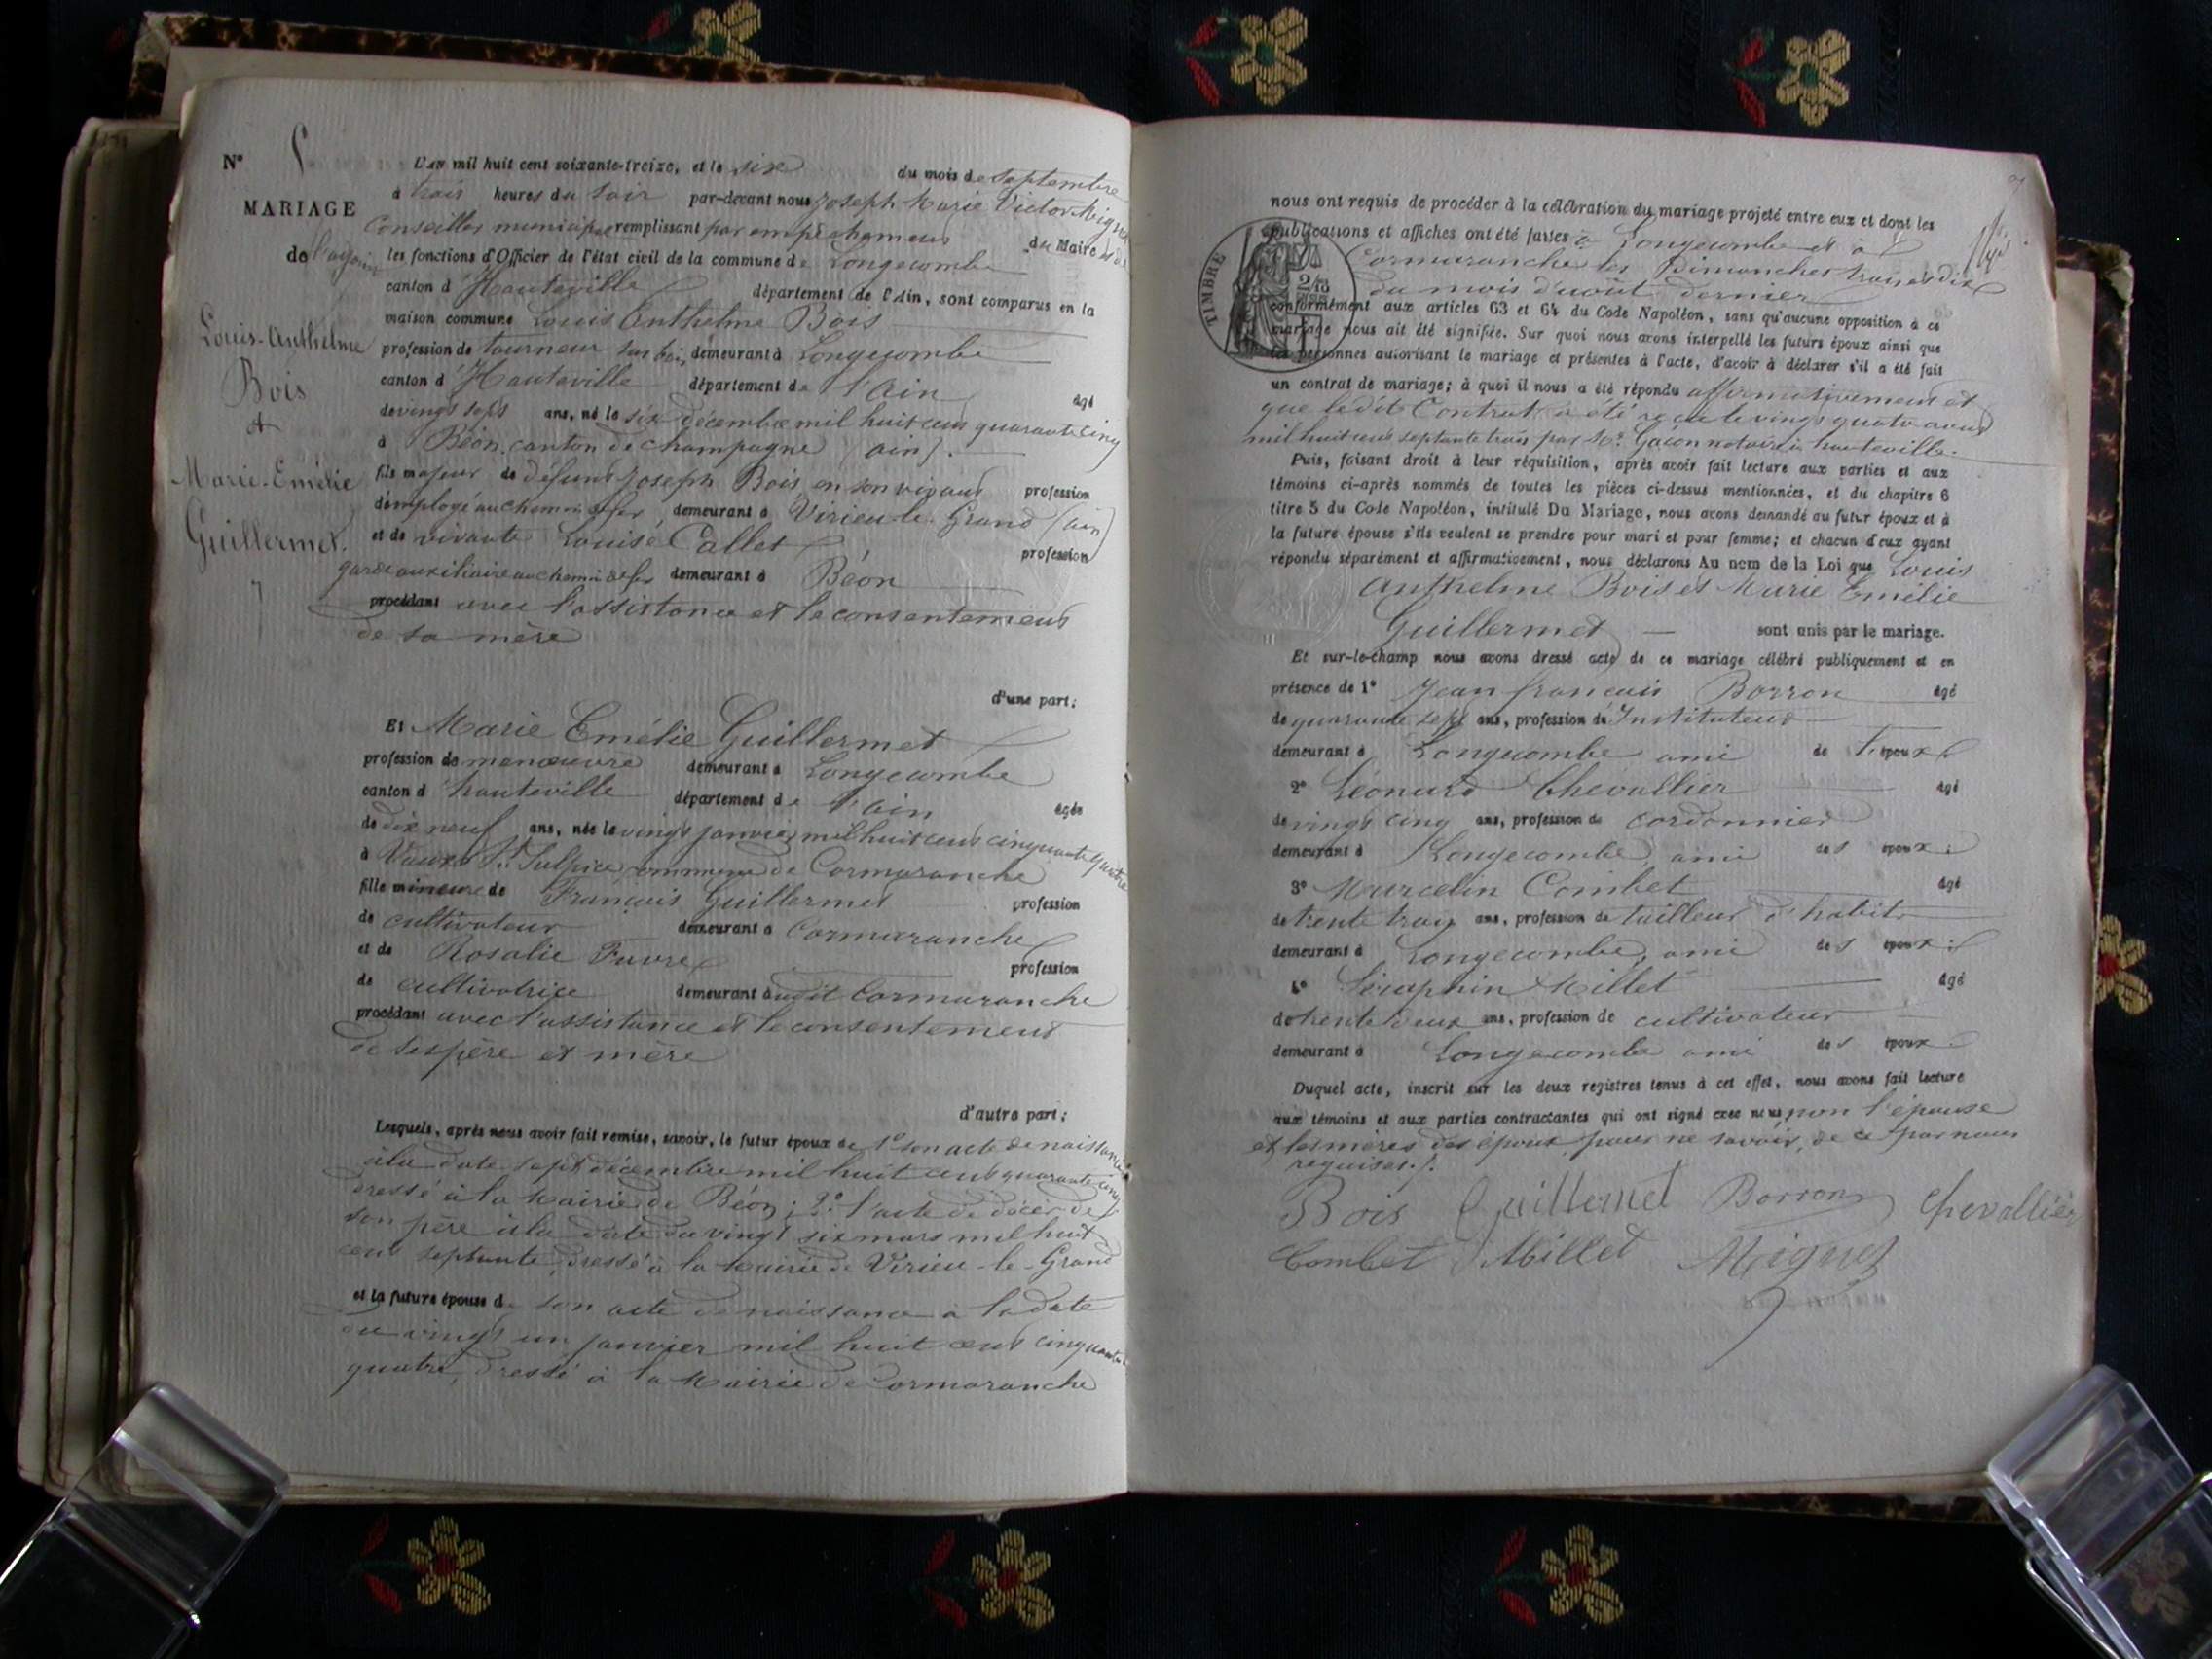 N° 5
MARIAGE
de
Louis-Anthelme
Bois
et
Marie-Emélie
Guillermet.
L'an mil huit cent soixante-treize, et le six du mois de septembre
à trois heures du soir par-devant nous Joseph Marie Victor
Conseiller municipal remplissant par empêchement du Maire
les fonctions d'Officier de l'état civil de la commune de Longecombe
canton d'Hauteville département de l'Ain, sont comparus en la
maison commune Louis Anthelme Bois
profession de tourneur sur bois, demeurant à Longecombe
canton d'Hauteville département de l'ain âgé
de vingt sept ans, né le six décembre mil huit cent quarante cinq
à Béon, canton de champagne (ain).
fils majeur de défunt Joseph Bois en son vivant profession
d'employé au chemin de fer, demeurant à Virieu-le-Grand (ain)
et de vivante Louise Callet profession
garde auxiliaire au chemin de fer demeurant à Béon
procédant avec l'assistance et le consentement
de sa mère
d'une part;
Et Marie Emélie Guillermet
profession de manoeuvre demeurant à Longecombe
canton d'hauteville département de l'ain âgée
de dix neuf ans, née le vingt janvier mil huit cent cinquante quatre
à Vaux St Sulpice commune de Cormaranche
fille mineure de François Guillermet profession
de cultivateur demeurant à Cormaranche
et de Rosalie Favre profession
de cultivatrice demeurant audit Cormaranche
procédant avec l'assistance et le consentement
de ses père et mère
d'autre part;
Lesquels, après nous avoir fait remise, savoir, le futur époux de 1° son acte de naissance
à la date sept décembre mil huit cent quarante cinq
dressé à la Mairie de Béon; 2° l'acte de décès de
son père à la date du vingt six mars mil huit
cent septante, dressé à la Mairie de Virieu-le-Grand
et la future épouse de son acte de naissance à la date
du vingt un janvier mil huit cent cinquante
quatre, dressé à la Mairie de Cormaranche
nous ont requis de procéder à la célébration du mariage projeté entre eux et dont les
publications et affiches ont été faites à Longecombe et à
Cormaranche les Dimanches trois et dix
du mois d'août dernier
TIMBRE
conformément aux articles 63 et 64 du Code Napoléon, sans qu'aucune opposition à ce
mariage nous ait été signifiée. Sur quoi nous avons interpellé les futurs époux ainsi que
les personnes autorisant le mariage et présentes à l'acte, d'avoir à déclarer s'il a été fait
un contrat de mariage; à quoi il nous a été répondu affirmativement et
que ledit Contrat a été reçu le vingt quatre août
mil huit cent septante trois par Me Gacon notaire à hauteville.
Puis, faisant droit à leur réquisition, après avoir fait lecture aux parties et aux
témoins ci-après nommés de toutes les pièces ci-dessus mentionnées, et du chapitre 6
titre 5 du Code Napoléon, intitulé Du Mariage, nous avons demandé au futur époux et à
la future épouse s'ils veulent se prendre pour mari et pour femme; et chacun d'eux ayant
répondu séparément et affirmativement, nous déclarons Au nom de la Loi que Louis
Anthelme Bois et Marie Emélie
Guillermet sont unis par le mariage.
Et sur-le-champ nous avons dressé acte de ce mariage célébré publiquement et en
présence de 1° Jean françois Borron âgé
de quarante sept ans, profession d'Instituteur
demeurant à Longecombe ami de l'époux
2° Léonard Chevallier âgé
de vingt cinq ans, profession de cordonnier
demeurant à Longecombe, ami des époux;
3° Marcelin Combet âgé
de trente trois ans, profession de tailleur d'habits
demeurant à Longecombe, ami des époux;
4° Séraphin Millet âgé
de trente deux ans, profession de cultivateur
demeurant à Longecombe ami des époux
Duquel acte, inscrit sur les deux registres tenus à cet effet, nous avons fait lecture
aux témoins et aux parties contractantes qui ont signé avec nous non l'épouse
et les mères des époux pour ne savoir, de ce par nous
requises./.
Bois Guillermet Borron Chevallier
Combet Millet Miguet